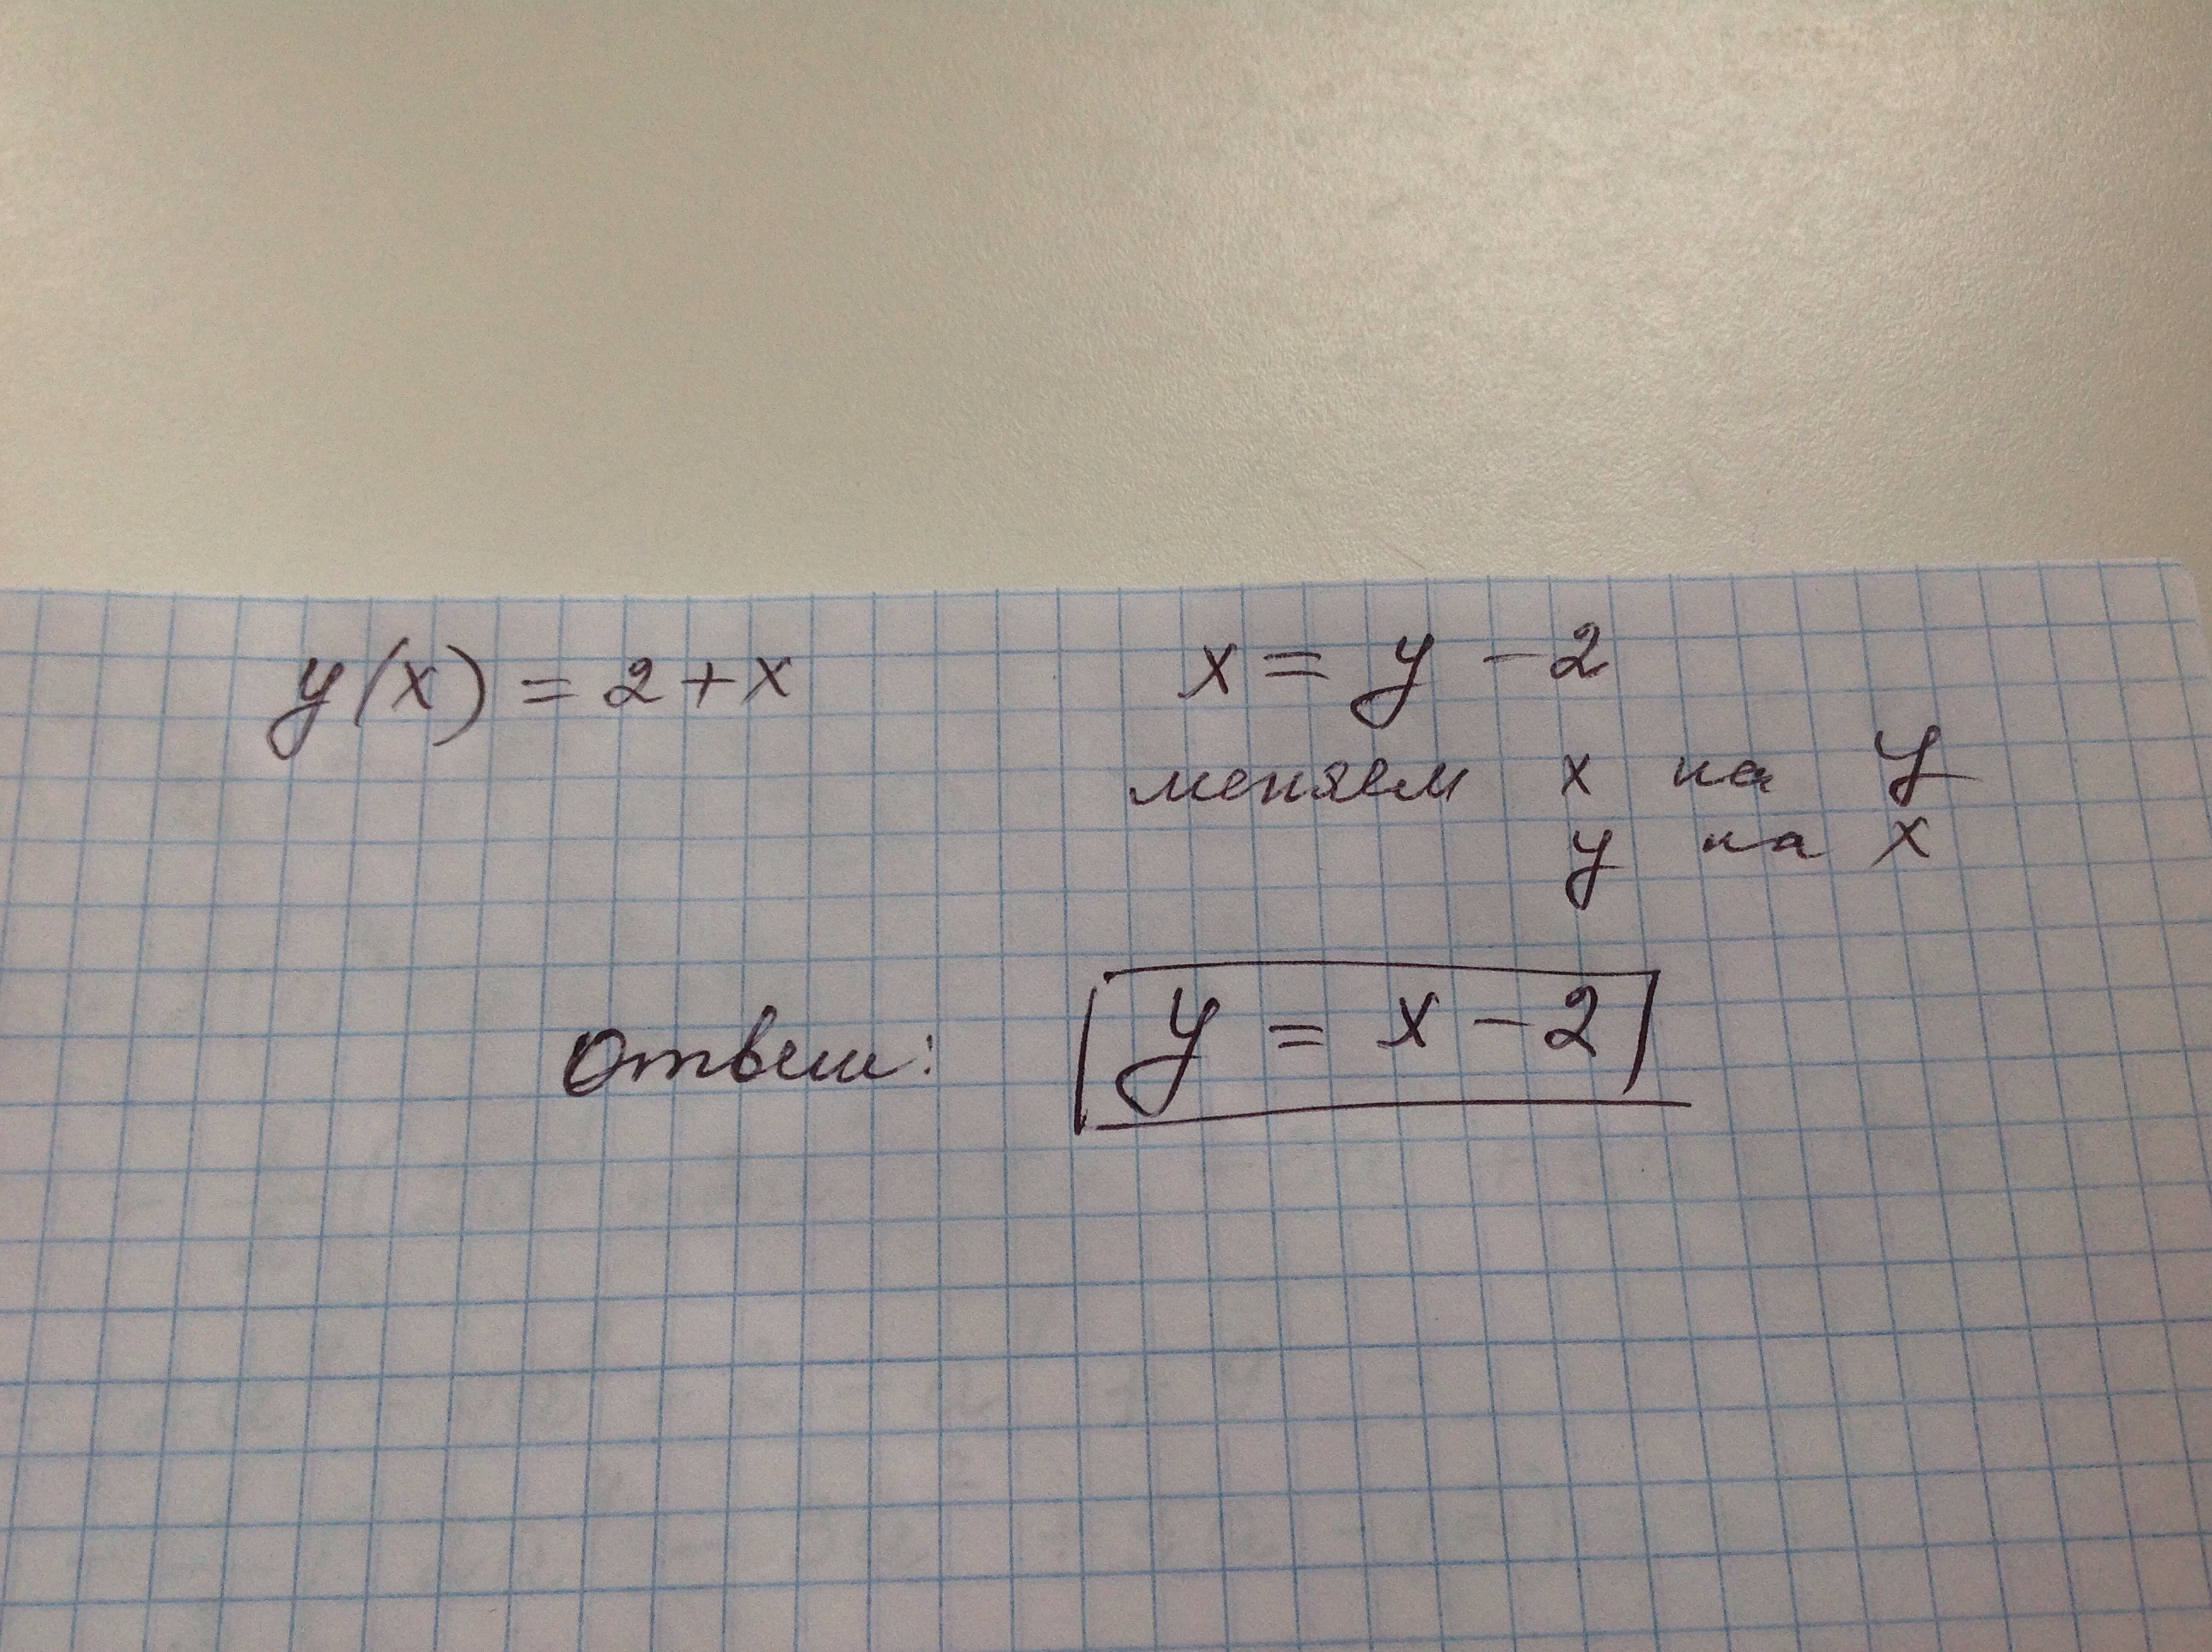 y(x) = 2 + x
x = y - 2
меняем x на y
y на x
Ответ: y = x - 2